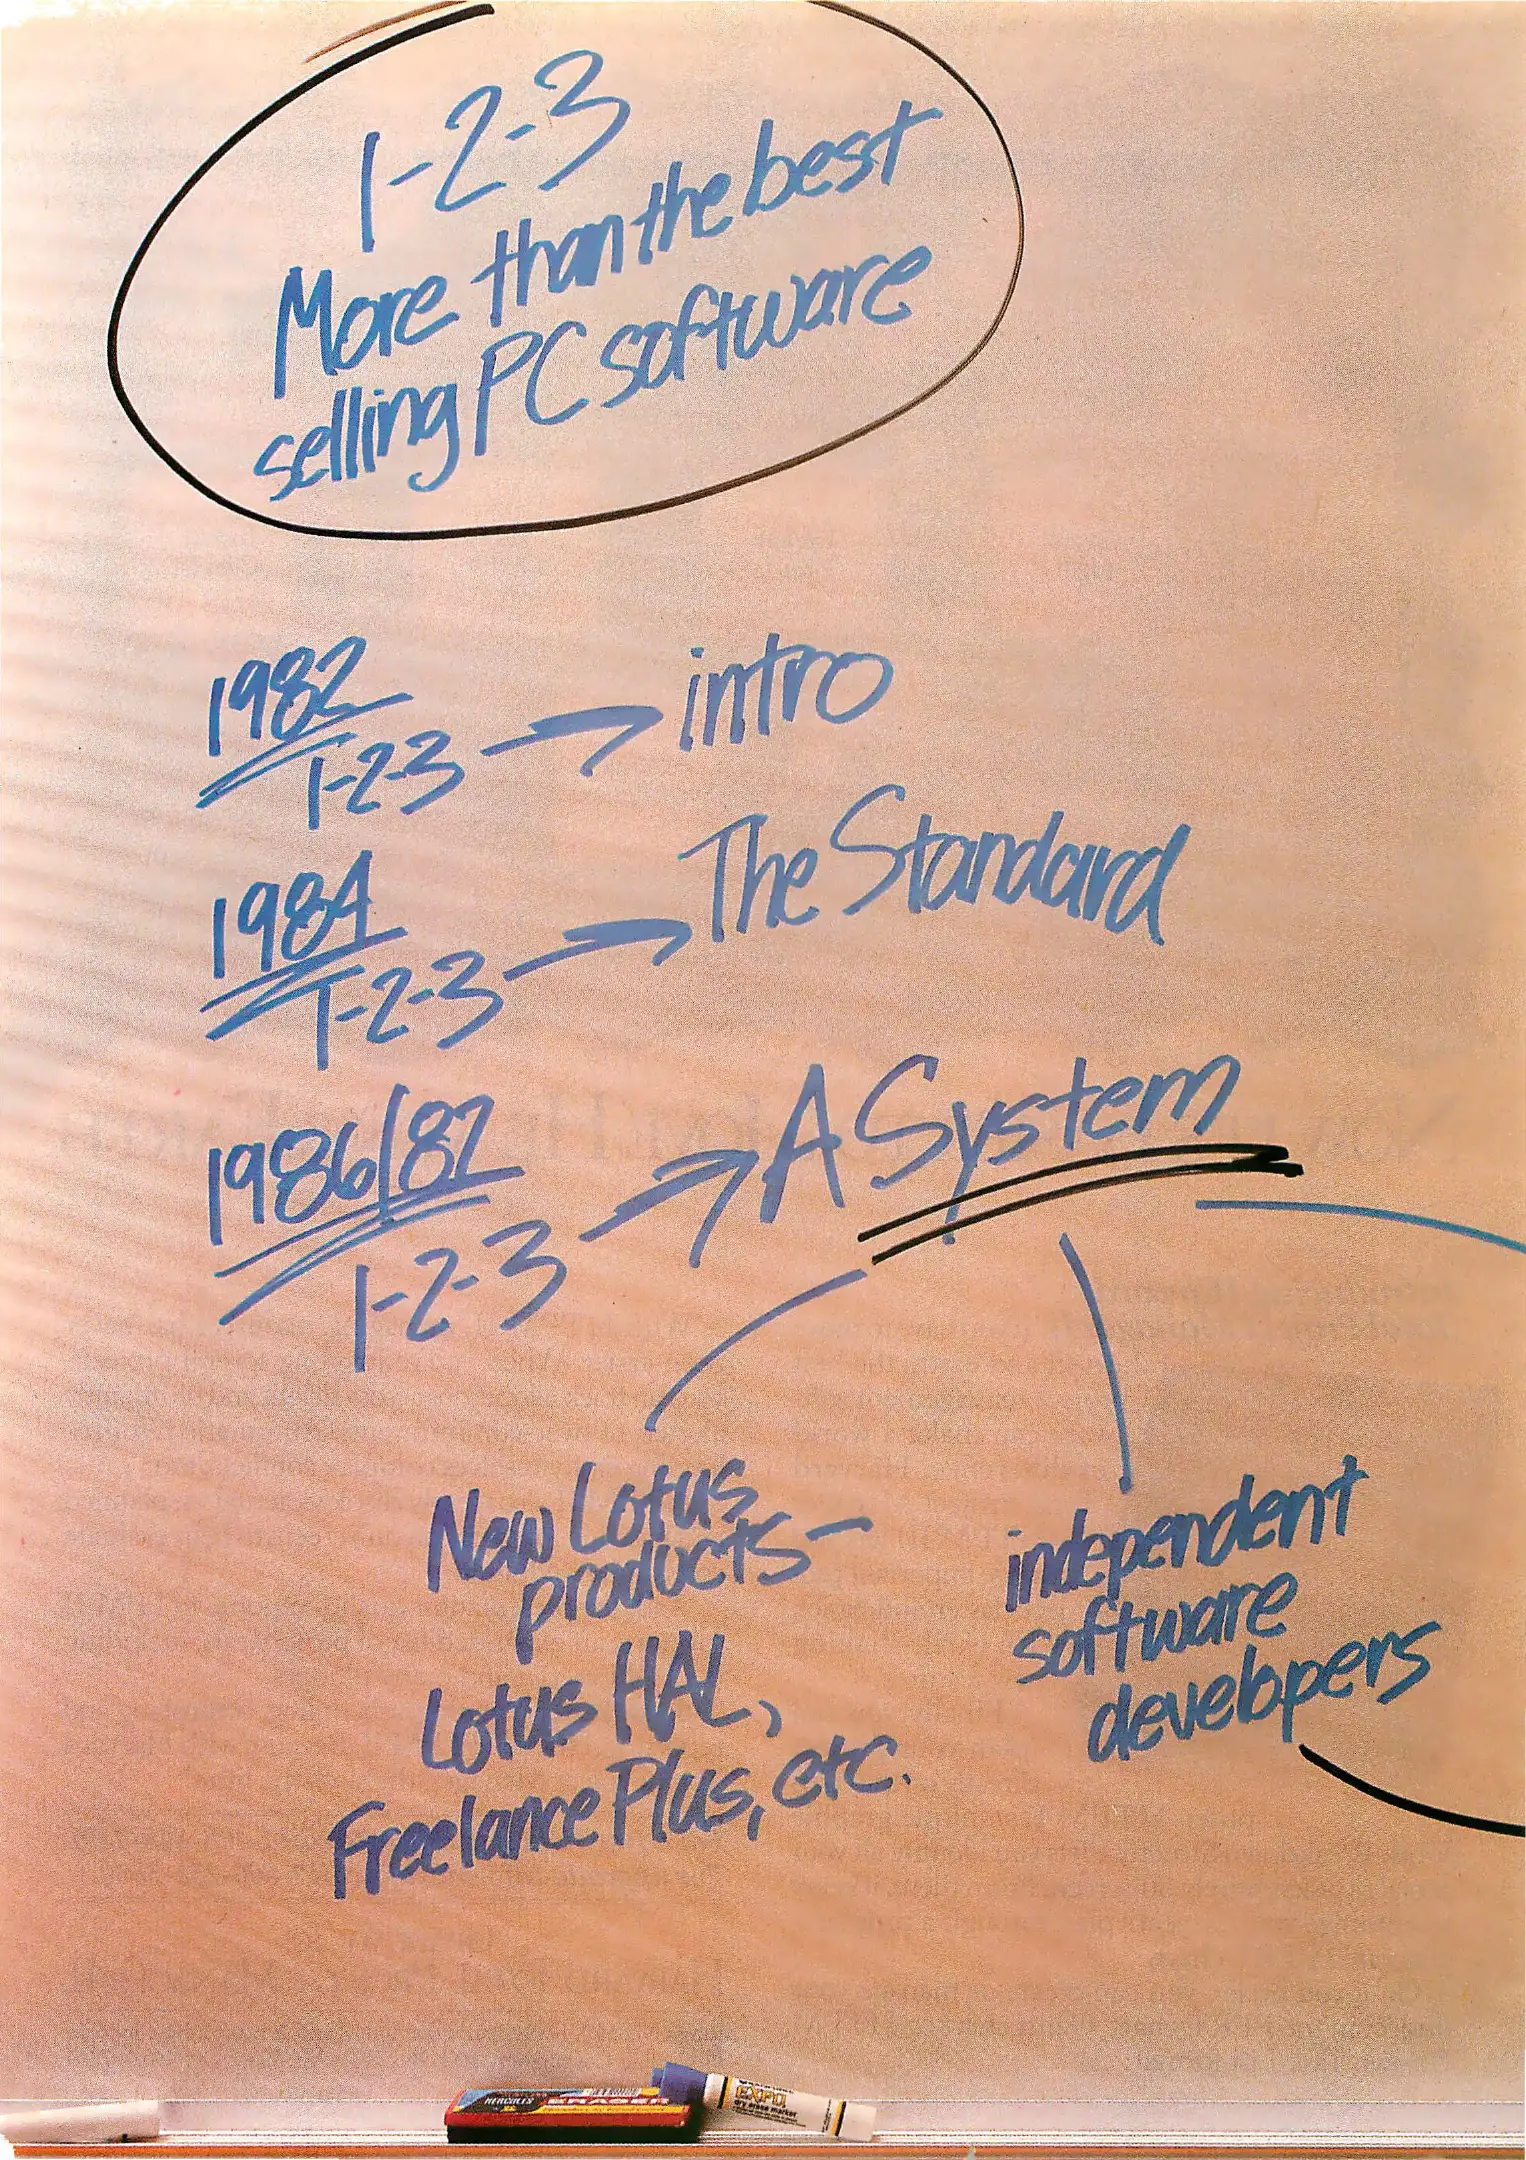 1-2-3
More than the best
selling PC software
1982
1-2-3 → intro
1984
1-2-3 → The Standard
1986/87
1-2-3 → A System
New Lotus
products–
Lotus HAL,
Freelance Plus, etc.
independent
software
developers
HERCULES ERASER
EXPO
dry erase marker